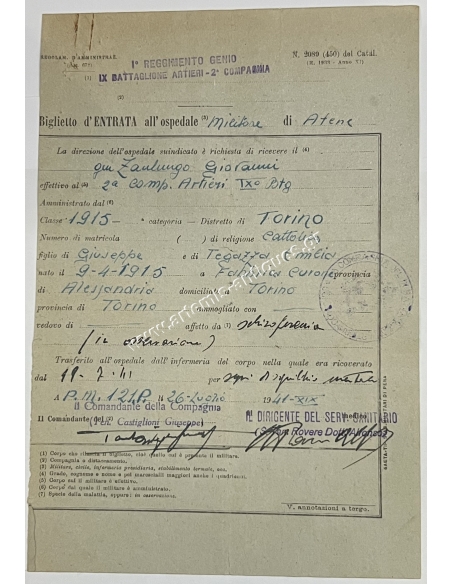 REGOLAM. D'AMMINISTRAZ.
N. 2089 (450) del Catal.
1° REGGIMENTO GENIO
IX BATTAGLIONE ARTIERI - 2° COMPAGNIA
Biglietto d'ENTRATA all'ospedale (3) Militare di Atene
La direzione dell'ospedale suindicato è richiesta di ricevere il (4)
Giovanni
effettivo al (5) 2a Comp. Artieri IX° Btg
Amministrato dal (6)
Classe 1915 - a categoria - Distretto di Torino
Numero di matricola ( ) di religione Cattolica
figlio di Giuseppe e di Emilia
nato il 9-4-1915 a provincia
di Alessandria domiciliato a Torino
provincia di Torino ammogliato con
vedovo di affetto da (7) schizofrenia
(in osservazione)
Trasferito all'ospedale dall'infermeria del corpo nella quale era ricoverato
dal 7.41 per segni di squilibrio mentale
A P.M. li 26 Luglio 1941-XIX°
Il Comandante della Compagnia
IL DIRIGENTE DEL SERV. SANITARIO
Il Comandante del (2)
Castiglioni Giuseppe)
(1) Corpo che rilascia il biglietto, che dal quale è partito il militare.
(2) Compagnia o distaccamento.
(3) Militare, civile, infermeria presidiaria, stabilimento termale, ecc.
(4) Grado, cognome e nome e pei marescialli maggiori anche i quadrimestri.
(5) Corpo nel quale il militare è effettivo.
(6) Corpo dal quale il militare è amministrato.
(7) Specie della malattia, oppure: in osservazione.
V. annotazioni a tergo.